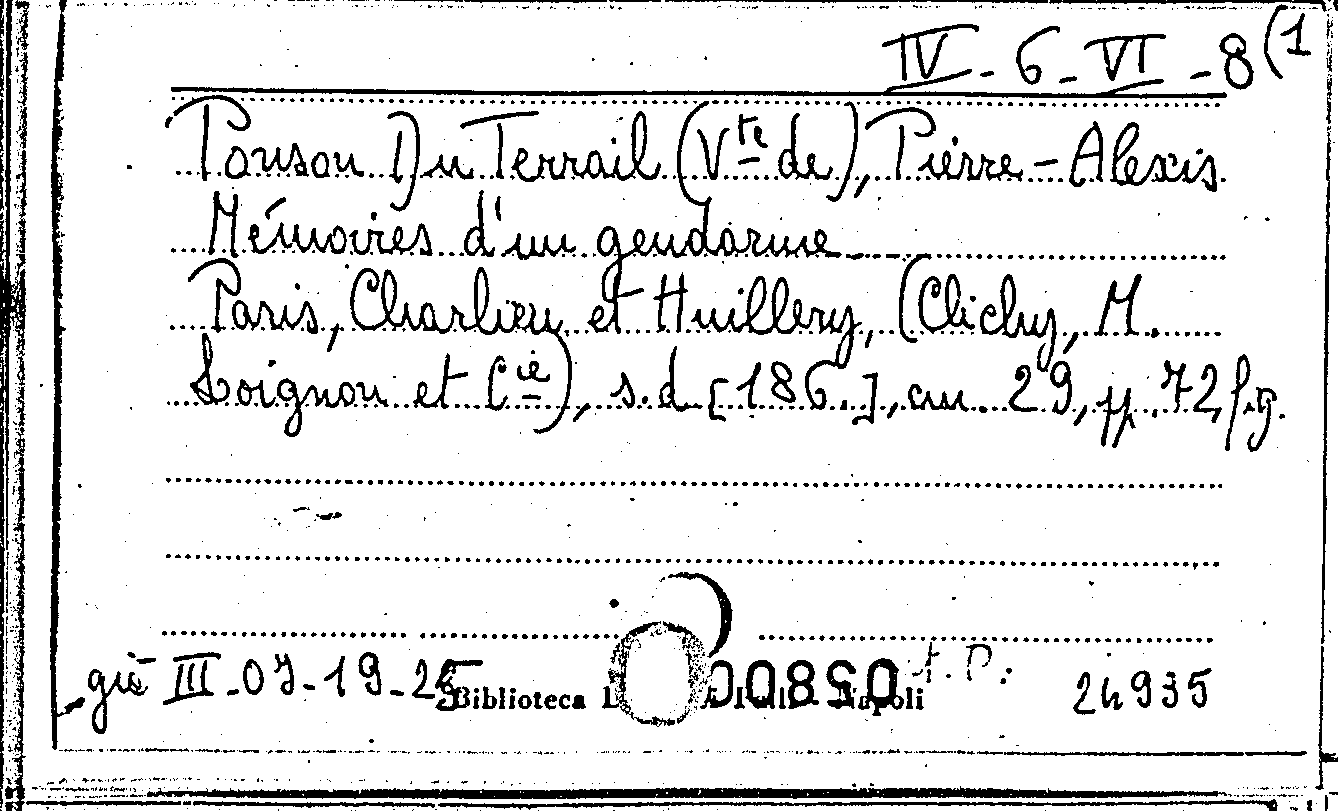 IV - 6 - VI - 8 (1
Ponson Du Terrail (Vte de), Pierre-Alexis
Mémoires d'un gendarme
Paris, Charlieu et Huillery, (Clichy, M.
Loignon et Cie), s.d. [186.], cm. 29, pp. 72, fig.
già III-07-19-25 Biblioteca Napoli 24935